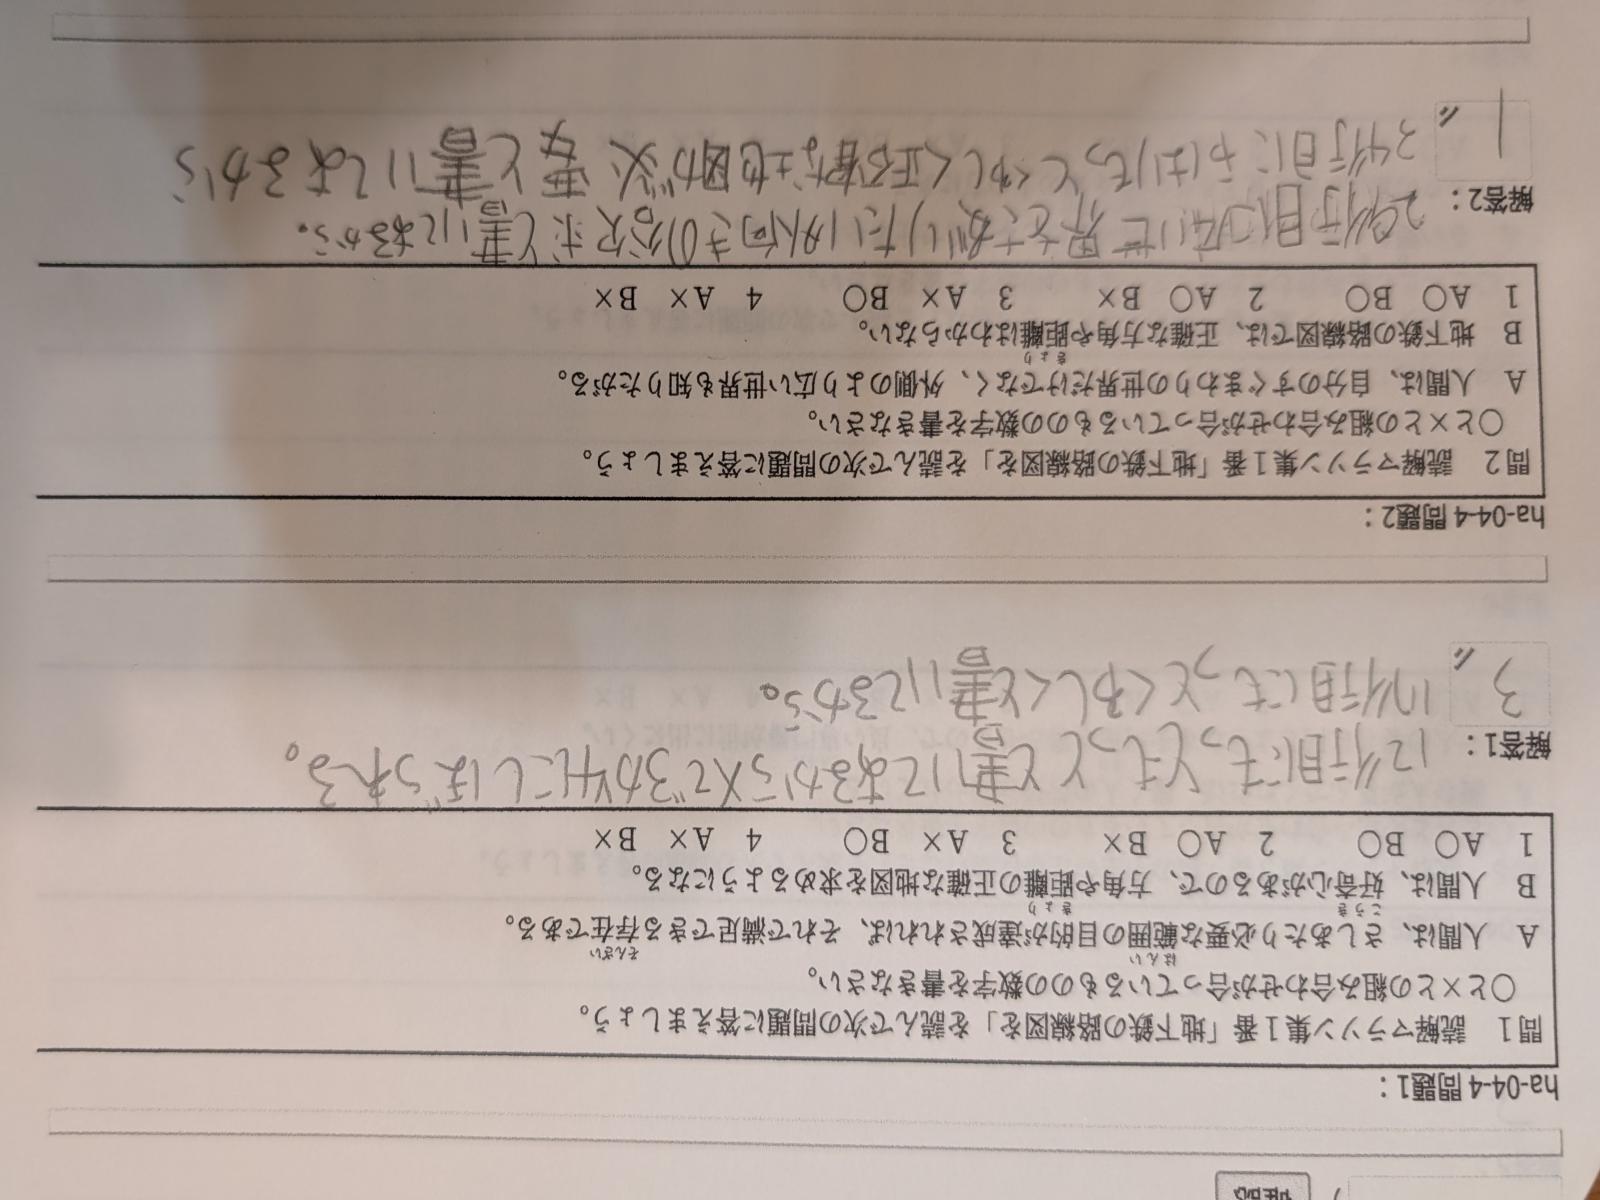 確認
ha-04-4 問題1：
問1 読解マラソン集1番「地下鉄の路線図を」を読んで次の問題に答えましょう。
○と×との組み合わせが合っているものの数字を書きなさい。
A 人間は、さしあたり必要な範囲の目的が達成されれば、それで満足できる存在である。
はんい そんざい
B 人間は、好奇心があるので、方角や距離の正確な地図を求めるようになる。
こうき きょり
1 A○ B○ 2 A○ B× 3 A× B○ 4 A× B×
解答1：
3
12行目にもっともっとと書いてあるから×で3か4にしぼられる。
17行目にもっとくわしくと書いてるから。
ha-04-4 問題2：
問2 読解マラソン集1番「地下鉄の路線図を」を読んで次の問題に答えましょう。
○と×との組み合わせが合っているものの数字を書きなさい。
A 人間は、自分のすぐまわりの世界だけでなく、外側のより広い世界も知りたがる。
B 地下鉄の路線図では、正確な方角や距離はわからない。
きょり
1 A○ B○ 2 A○ B× 3 A× B○ 4 A× B×
解答2：
1
29行目に広い世界をさがりたい外向きの と書いてあるから。
34行目にやはりもっとくわしく正確な地図が必要と書いてあるから